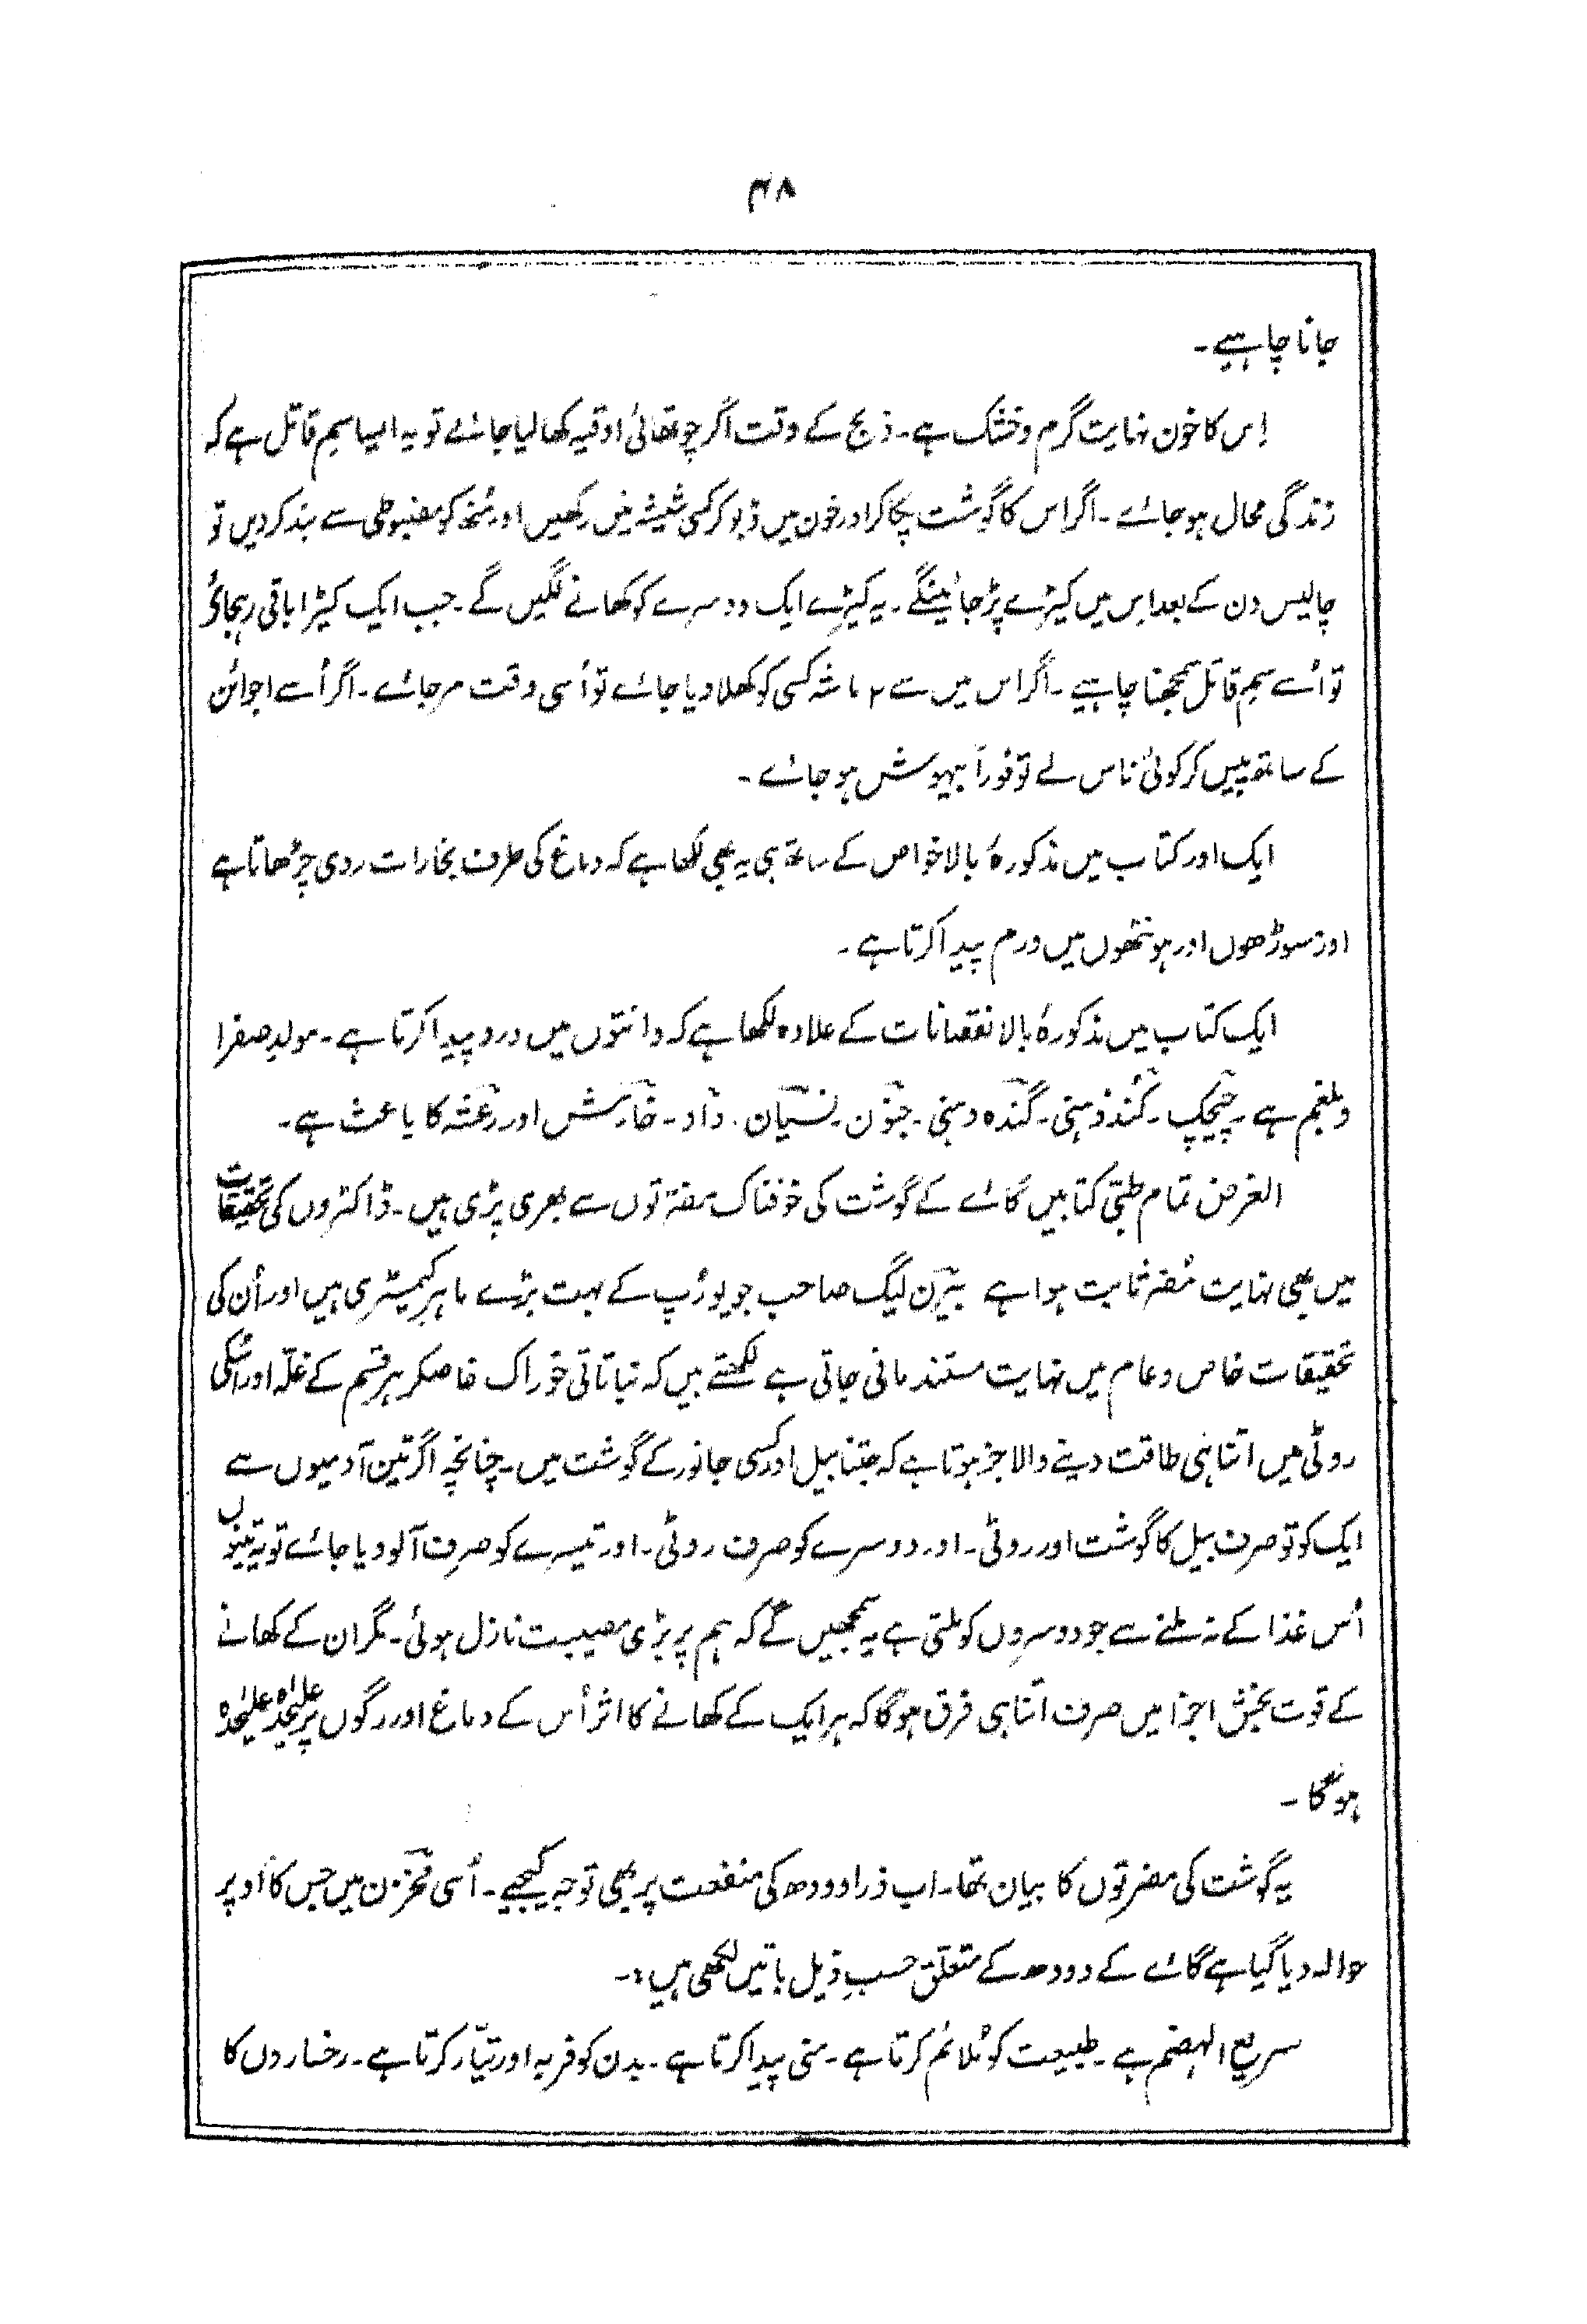 ۴۸
جانا چاہیے۔
اِس کا خون نہایت گرم و خشک ہے۔ ذبح کے وقت اگر چوتھائی اوقیہ کھا لیا جائے تو یہ ایسا سمِ قاتل ہے کہ
زندگی محال ہو جائے۔ اگر اس کا گوشت پکا کر اور خون میں ڈبو کر کسی شیشہ میں رکھیں اور مُنھ کو مضبوطی سے بند کر دیں تو
چالیس دن کے بعد اِس میں کیڑے پڑ جائینگے۔ یہ کیڑے ایک دوسرے کو کھانے لگیں گے۔ جب ایک کیڑا باقی رہجائے
تو اُسے سمِ قاتل سمجھنا چاہیے۔ اگر اس میں سے ۲ ماشہ کسی کو کھلا دیا جائے تو اُسی وقت مر جائے۔ اگر اُسے اجوائن
کے ساتھ پیس کر کوئی ناس لے تو فوراً بیہوش ہو جائے۔
ایک اور کتاب میں مذکورۂ بالا خواص کے ساتھ ہی یہ بھی لکھا ہے کہ دماغ کی طرف بخارات ردی چڑھاتا ہے
اور مسوڑھوں اور ہونٹھوں میں ورم پیدا کرتا ہے۔
ایک کتاب میں مذکورۂ بالا نقصانات کے علاوہ لکھا ہے کہ دانتوں میں درد پیدا کرتا ہے۔ مولدِ صفرا
و بلغم ہے۔ چیچک۔ کُند ذہنی۔ گندہ دہنی۔ جنون۔ نسیان۔ داد۔ خارش اور رعشہ کا باعث ہے۔
الغرض تمام طبّی کتابیں گائے کے گوشت کی خوفناک مضرتوں سے بھری پڑی ہیں۔ ڈاکٹروں کی تحقیقات
میں بھی نہایت مُضر ثابت ہوا ہے بیرن لیگ صاحب جو یورُپ کے بہت بڑے ماہرِ کیمسٹری ہیں اور اُن کی
تحقیقات خاص و عام میں نہایت مستند مانی جاتی ہے لکھتے ہیں کہ نباتاتی خوراک خاصکر ہر قسم کے غلّہ اور اُسکی
روٹی میں اتنا ہی طاقت دینے والا جز ہوتا ہے کہ جتنا بیل اور کسی جانور کے گوشت میں۔ چنانچہ اگر تین آدمیوں سے
ایک کو تو صرف بیل کا گوشت اور روٹی۔ اور دوسرے کو صرف روٹی۔ اور تیسرے کو صرف آلو دیا جائے تو یہ تینوں
اُس غذا کے نہ ملنے سے جو دوسروں کو ملتی ہے یہ سمجھیں گے کہ ہم پر بڑی مصیبت نازل ہوئی۔ مگر ان کے کھانے
کے قوت بخش اجزا میں صرف اتنا ہی فرق ہوگا کہ ہر ایک کے کھانے کا اثر اُس کے دماغ اور رگوں پر علیٰحدہ علیٰحدہ
ہوگا۔
یہ گوشت کی مضرتوں کا بیان تھا۔ اب ذرا دودھ کی منفعت پر بھی توجہ کیجیے۔ اُسی مخزن میں جس کا اُوپر
حوالہ دیا گیا ہے گائے کے دودھ کے متعلق حسبِ ذیل باتیں لکھی ہیں:۔
سریع الہضم ہے۔ طبیعت کو مُلائم کرتا ہے۔ منی پیدا کرتا ہے۔ بدن کو فربہ اور تیّار کرتا ہے۔ رخساروں کا